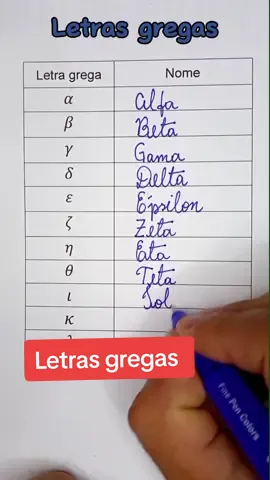 Letras gregas
Letra grega Nome
α Alfa
β Beta
γ Gama
δ Delta
ε Épsilon
ζ Zeta
η Eta
θ Teta
ι
κ
Letras gregas
Fine Pen Colors